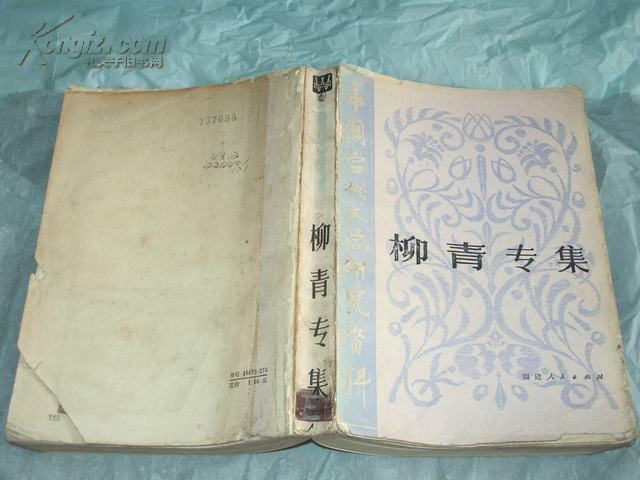 Kongfz.com
孔夫子旧书网
737098
43.2
书号 10173·275
定价 1.46 元
柳青专集
中国当代文学研究资料
柳青专集
福建人民出版社